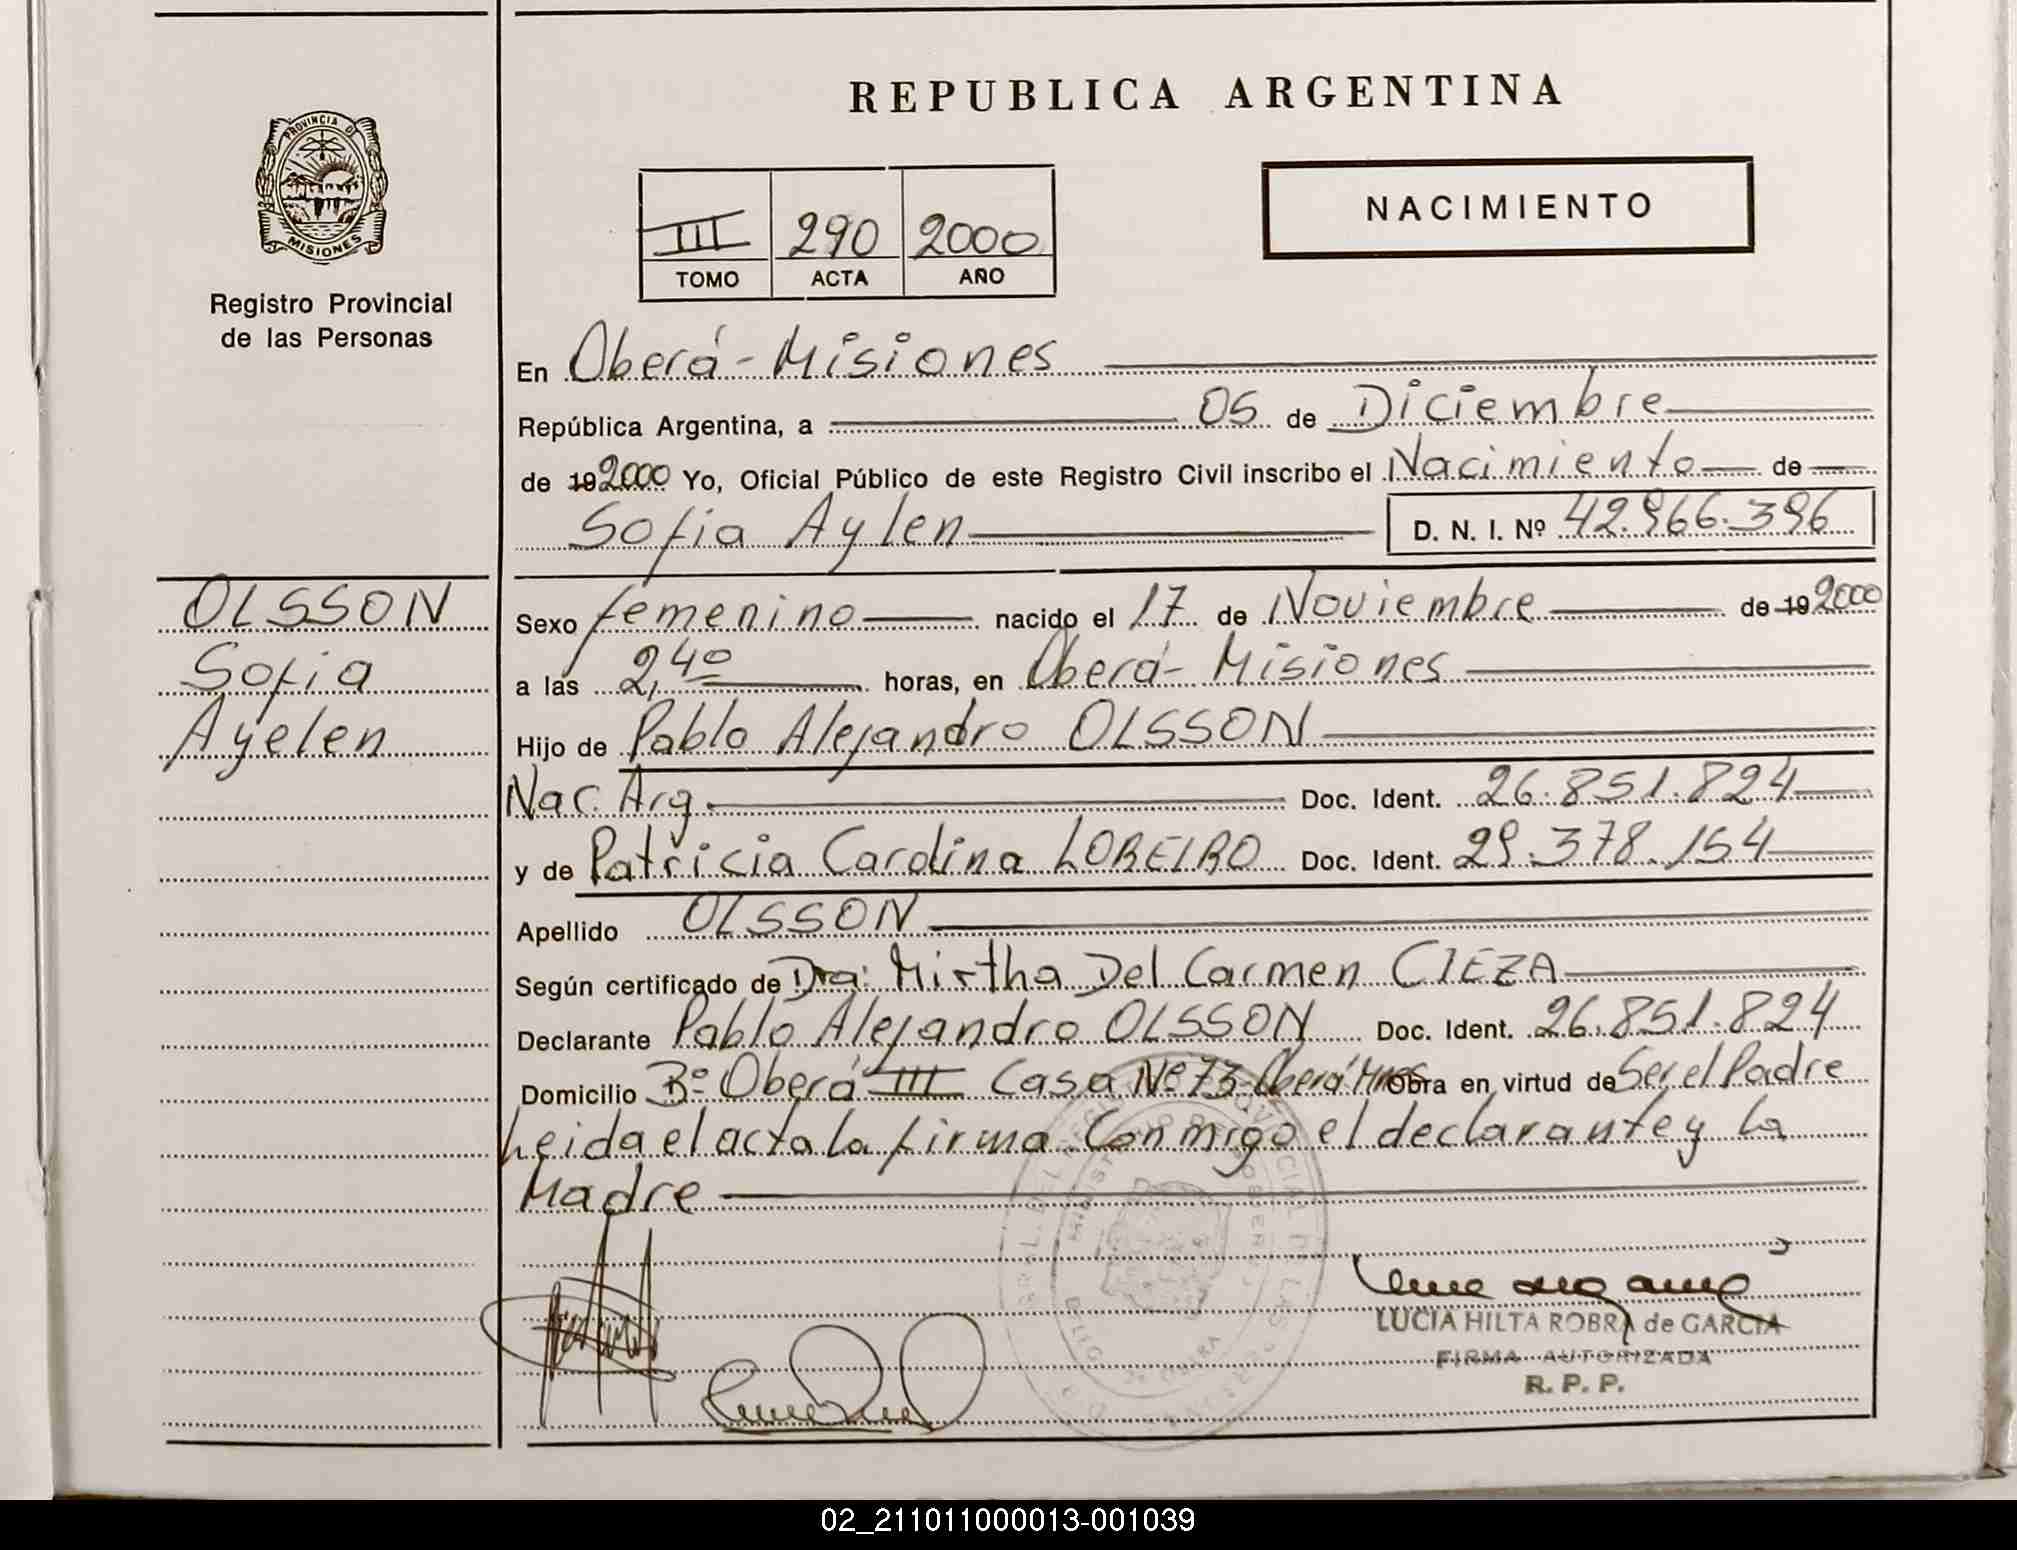 REPUBLICA ARGENTINA
PROVINCIA DE
MISIONES
Registro Provincial
de las Personas
III 290 2000
TOMO ACTA AÑO
NACIMIENTO
En Oberá - Misiones
República Argentina, a 05 de Diciembre
de 19 2000 Yo, Oficial Público de este Registro Civil inscribo el Nacimiento de
Sofia Aylen D. N. I. Nº 42.966.396
OLSSON
Sofia
Ayelen
Sexo femenino nacido el 17 de Noviembre de 19 2000
a las 2,40 horas, en Oberá - Misiones
Hijo de Pablo Alejandro OLSSON
Nac. Arg. Doc. Ident. 26.851.824
y de Patricia Carolina LOREIRO Doc. Ident. 29.378.154
Apellido OLSSON
Según certificado de Dra: Mirtha Del Carmen CIEZA
Declarante Pablo Alejandro OLSSON Doc. Ident. 26.851.824
Domicilio Bº Oberá III Casa Nº 73-Oberá Mnes Obra en virtud de Ser el Padre
Leida el acta la firma Conmigo el declarante y la
Madre
LUCIA HILTA ROBRA de GARCIA
FIRMA AUTORIZADA
R. P. P.
02_211011000013-001039